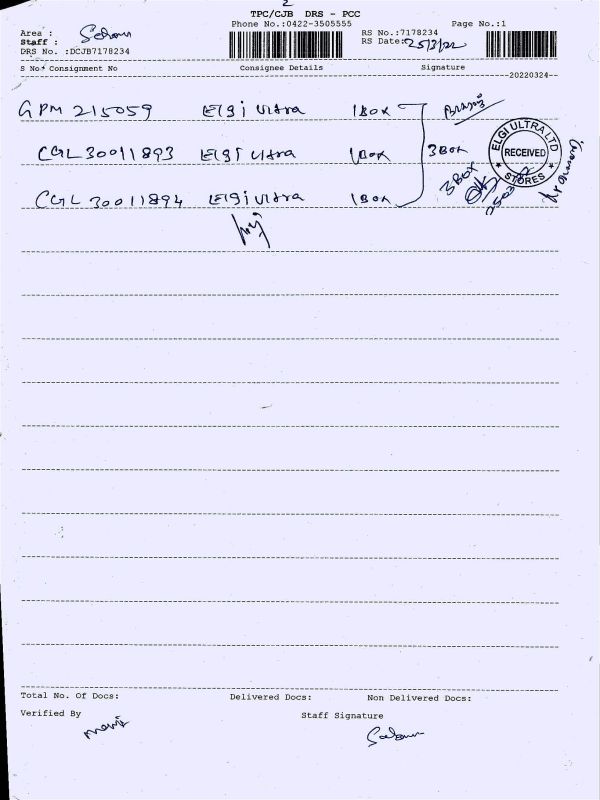 2
TPC/CJB DRS - PCC
Phone No.:0422-3505555
Page No.:1
Area :
Staff :
DRS No. :DCJB7178234
RS No.:7178234
RS Date: 25/3/22
S No. Consignment No Consignee Details Signature
20220324
GPM 215059 Elgi Ultra 1 Box
CGL 30011893 Elgi Ultra 1 Box 3 Box
CGL 30011894 Elgi Ultra 1 Box
3 BOX
ELGI ULTRA LTD
RECEIVED
STORES
Total No. Of Docs: Delivered Docs: Non Delivered Docs:
Verified By Staff Signature